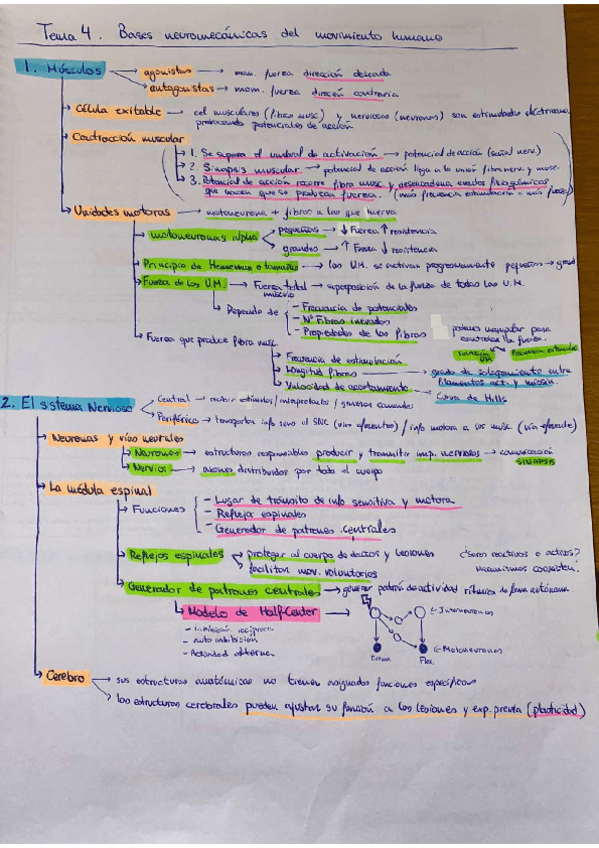 Tema 4. Bases neuromecánicas del movimiento humano
1. Músculos → agonistas → mom. fuerza dirección deseada
→ antagonistas → mom. fuerza direcón contraria
Célula exitable → cel musculares (fibra musc) y nerviosas (neuronas) son estimuladas eléctricam.
provocando potenciales de acción
Contracción muscular
1. Se supera el umbral de activación → potencial de acción (señal nerv.)
2. Sinapsis muscular → potencial de acción llega a la unión fibra nerv. y musc.
3. Potencial de acción recorre fibra musc y desencadena eventos fisicoquímicos
que hacen que se produzcan fuerza. (más frecuencia estimulación = más fuerza)
Unidades motoras → motoneurona + fibras a las que inerva
motoneuronas alpha → pequeñas → ↓ Fuerza ↑ resistencia
grandes → ↑ Fuerza ↓ resistencia
Principio de Henneman o tamaño → las U.M. se activan progresivamente pequeñas → grand
Fuerza de las U.M. → Fuerza total músculo → superposición de la fuerza de todas las U.M.
Depende de
- Frecuencia de potenciales
- Nº Fibras inervadas
- Propiedades de las fibras
podemos manipular para
controlar la fuerza.
Fuerza que produce fibra musc
Frecuencia de estimulación
Longitud fibras → grado de solapamiento entre
filamentos act. y miosin.
Velocidad de acortamiento → Curva de Hills
2. El sistema Nervioso → Central → recibir estímulos / interpretarlos / generar comandos
Periférico → transporta info sens al SNC (vías aferentes) / info motora a los musc (vía eferente)
Neuronas y vías neurales
Neuronas → estructuras responsables producir y transmitir imp. nerviosos → comunicación
SINAPSIS
Nervios → axones distribuidos por todo el cuerpo
La médula espinal
Funciones
- Lugar de tránsito de info sensitiva y motora
- Reflejos espinales
- Generador de patrones centrales
Reflejos espinales → proteger al cuerpo de daños y lesiones
facilitan mov. voluntarios
¿Seres reactivos o activos?
Mecanismos coexisten!
Generador de patrones centrales → generar patrón de actividad rítmica de forma autónoma
Modelo de Half-Center →
- inhibición recíproca
- auto inhibición
- Actividad alterna
← Interneuronas
← Motoneuronas
Exten. Flex.
Cerebro → sus estructuras anatómicas no tienen asignadas funciones específicas
las estructuras cerebrales pueden ajustar su función a las lesiones y exp. previa (plasticidad)